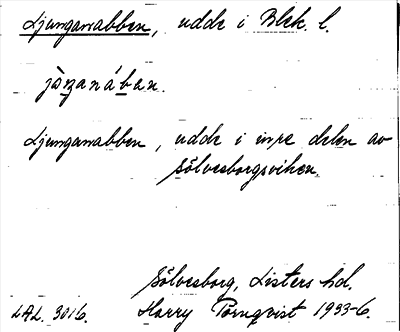 Ljunganabben, udde i Blek. l.
jòṉanában.
Ljunganabben, udde i inre delen av
Sölvesborgsviken.
Sölvesborg, Listers hd.
LAL. 3016. Harry Törnqvist 1933-6.